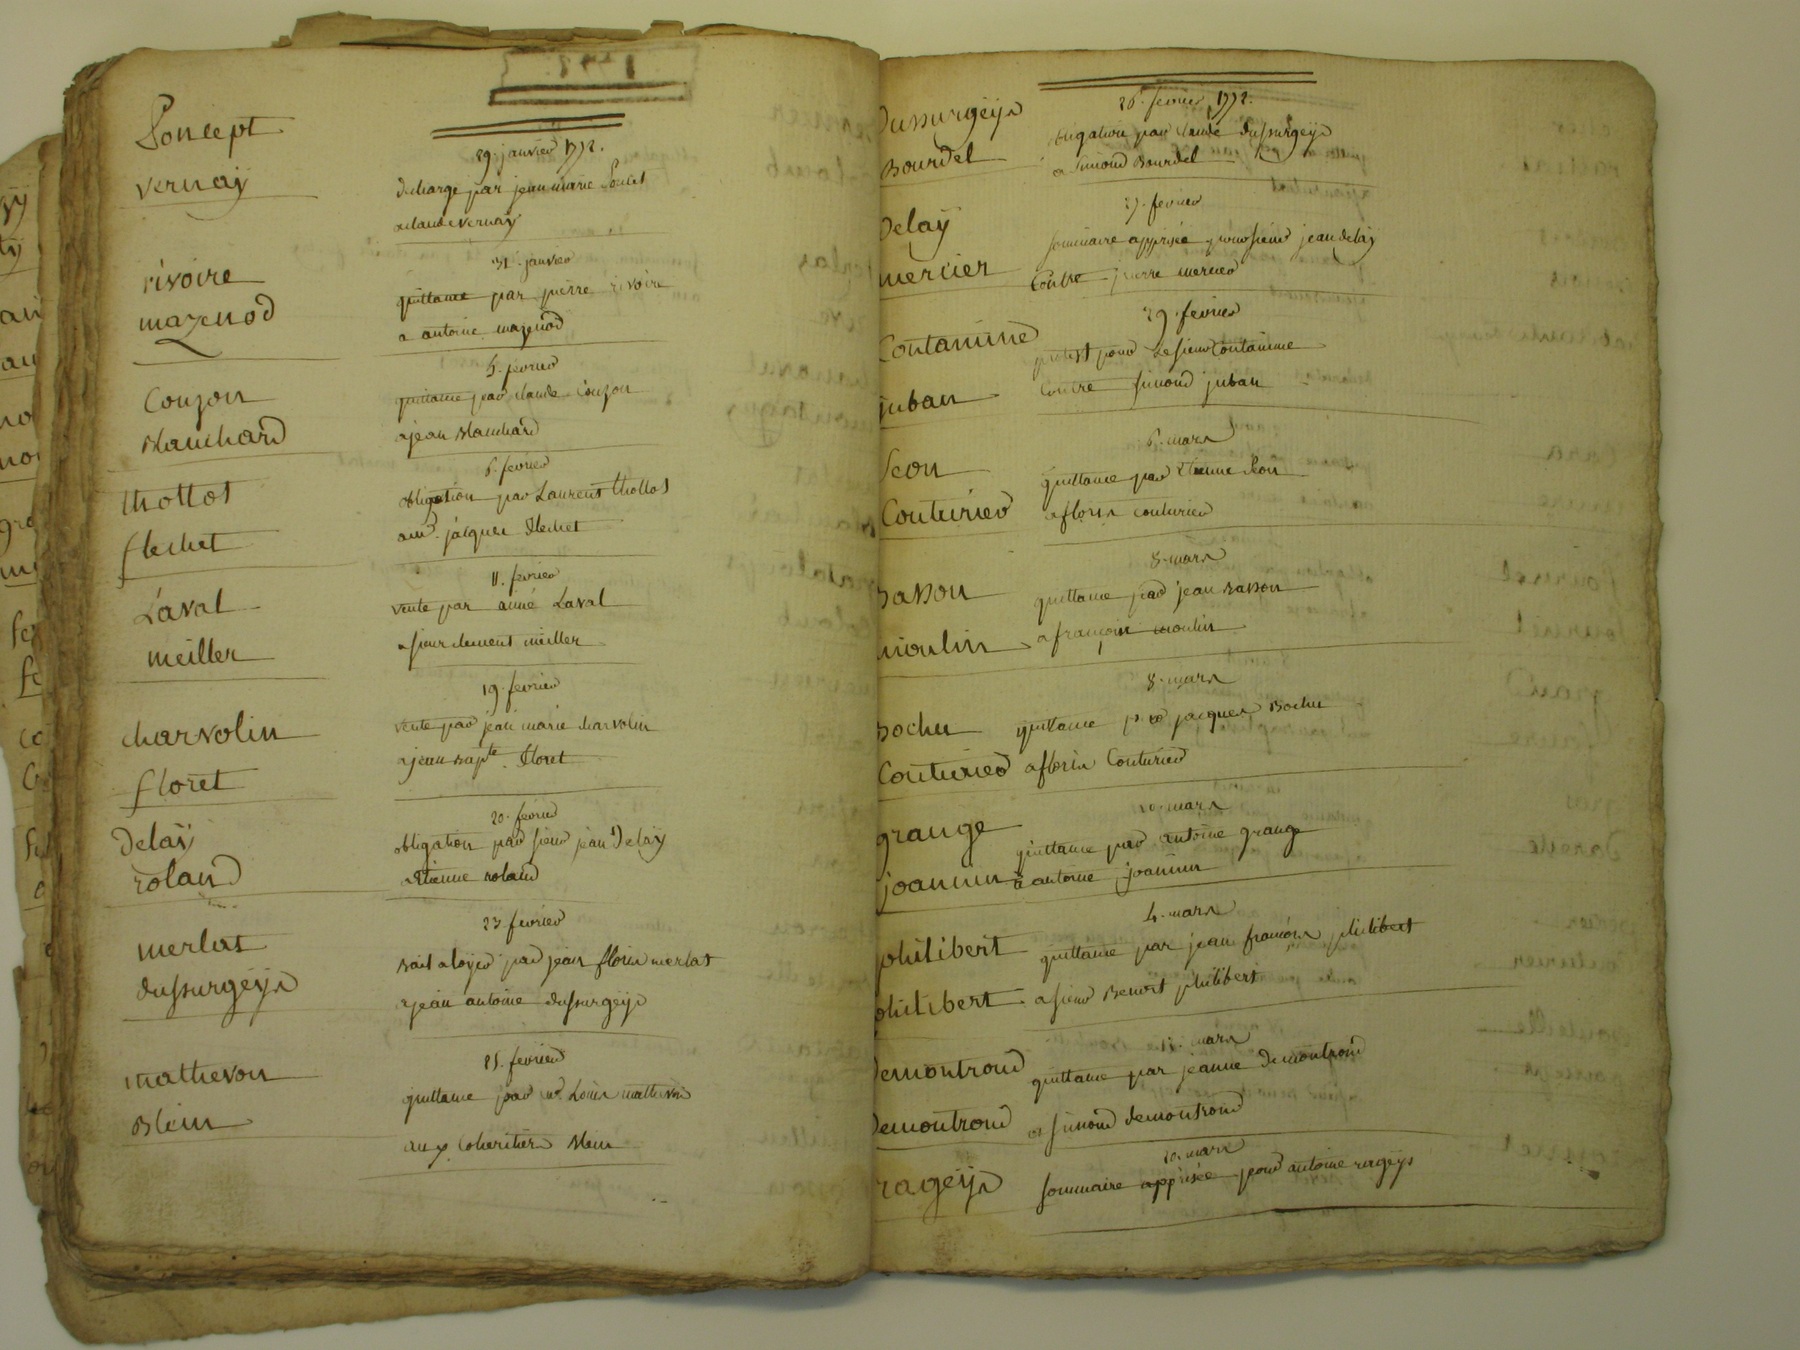 29. janvier 1772.
vernaÿ
decharge par jean marie
a claude vernaÿ
31. janvier
rivoire
quittance par pierre rivoire
mazenod
a antoine mazenod
5. fevrier
Couzon
quittance par claude Couzon
Blanchard
a jean Blanchard
6. fevrier
thollot
obligation par Laurent thollot
flechet
a mr. jacques flechet
11. fevrier
Laval
vente par aimé Laval
meiller
a sieur clement meiller
19. fevrier
charvolin
vente par jean marie charvolin
floret
a jean bapte. floret
20. fevrier
Delaÿ
obligation par sieur jean Delaÿ
roland
a Etienne roland
23. fevrier
merlat
bail a loyer par jean fleury merlat
dussurgeÿs
a jean antoine dussurgeÿs
25. fevrier
mathevon
quittance par mr. Louis mathevon
Blein
aux Coheritiers Blein
26. fevrier 1772.
Dussurgeÿs
obligation par claude dussurgeÿs
Bourdel
a simond Bourdel
27. fevrier
Delaÿ
sommaire apprisée pour sieur jean delaÿ
mercier
Contre pierre mercier
29. fevrier
Contamine
protest pour Le sieur Contamine
juban
Contre simond juban
6. mars
quittance par Etienne
Couturier
a couturier
8. mars
Basson
quittance par jean Basson
moulin
a françois moulin
8. mars
Bochu
quittance par jacques Bochu
Couturier
a Couturier
10. mars
grange
quittance par antoine grange
joannin
a antoine joannin
4. mars
philibert
quittance par jean françois philibert
philibert
a sieur Benoit philibert
mars
Demontrond
quittance par jeanne Demontrond
Demontrond
a simond demontrond
10. mars
rageÿs
sommaire apprisée pour antoine rageÿs